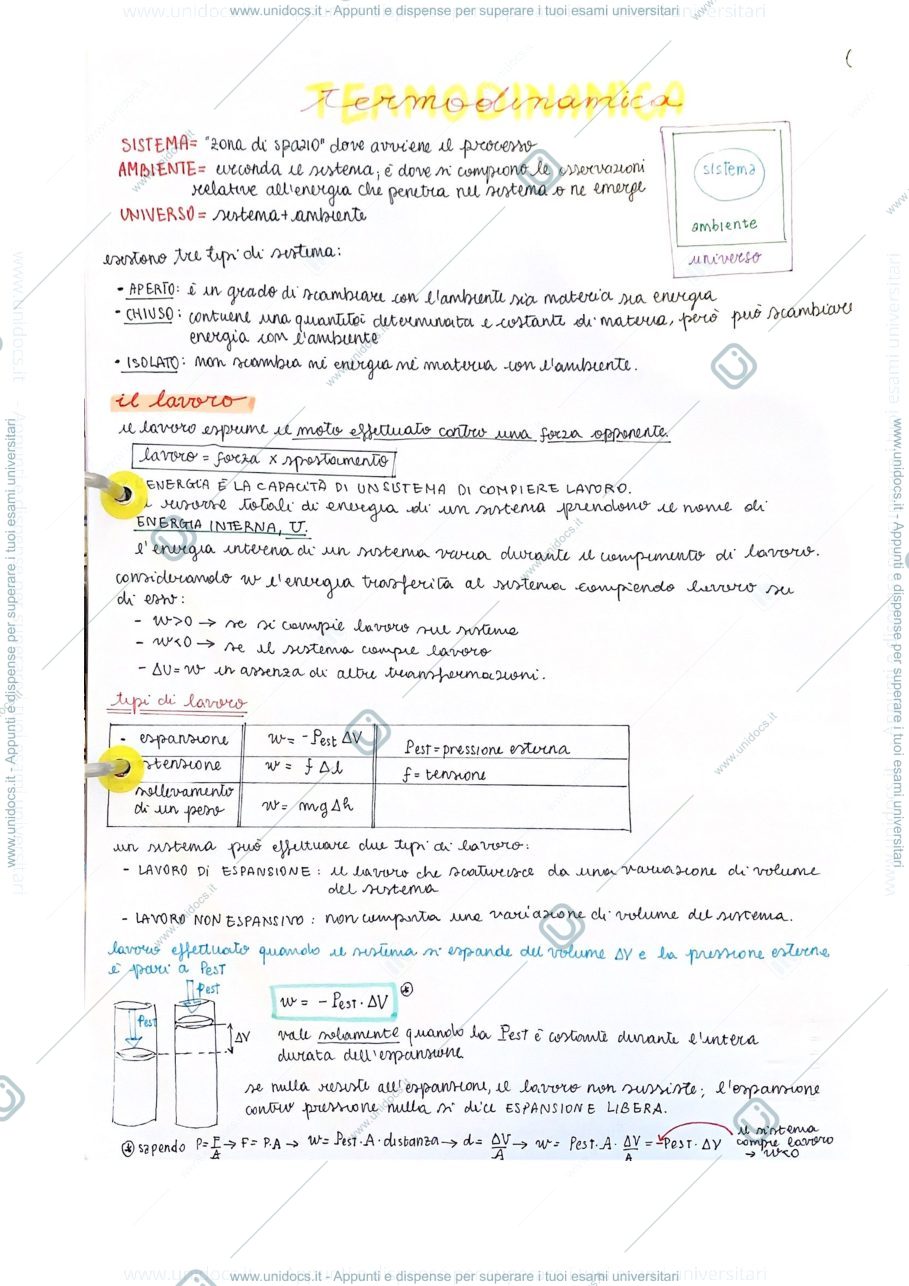 www.unidocs.it - Appunti e dispense per superare i tuoi esami universitari
(
TERMODINAMICA
termodinamica
SISTEMA= "zona di spazio" dove avviene il processo
AMBIENTE= circonda il sistema, è dove si compiono le osservazioni
relative all'energia che penetra nel sistema o ne emerge
UNIVERSO= sistema + ambiente
sistema
ambiente
universo
esistono tre tipi di sistema:
- APERTO: è in grado di scambiare con l'ambiente sia materia sia energia
- CHIUSO: contiene una quantità determinata e costante di materia, però può scambiare
energia con l'ambiente
- ISOLATO: non scambia né energia né materia con l'ambiente.
il lavoro
il lavoro esprime il moto effettuato contro una forza opponente.
lavoro = forza x spostamento
ENERGIA È LA CAPACITÀ DI UN SISTEMA DI COMPIERE LAVORO.
risorse totali di energia di un sistema prendono il nome di
ENERGIA INTERNA, U.
l'energia interna di un sistema varia durante il compimento di lavoro.
considerando w l'energia trasferita al sistema compiendo lavoro su
di esso:
- w>0 → se si compie lavoro sul sistema
- w<0 → se il sistema compie lavoro
- ΔU=w in assenza di altre transformazioni.
tipi di lavoro
- espansione w= -Pest ΔV Pest=pressione esterna
stensione w= f Δl f= tensione
sollevamento
di un peso w= mgΔh
un sistema può effettuare due tipi di lavoro:
- LAVORO DI ESPANSIONE: il lavoro che scaturisce da una variazione di volume
del sistema
- LAVORO NON ESPANSIVO: non comporta una variazione di volume del sistema.
lavoro effettuato quando il sistema si espande del volume ΔV e la pressione esterna
è pari a PEST
Pest
Pest
ΔV
w= - PEST·ΔV *
vale solamente quando la Pest è costante durante l'intera
durata dell'espansione
se nulla resiste all'espansione, il lavoro non sussiste; l'espansione
contro pressione nulla si dice ESPANSIONE LIBERA.
* sapendo P=F/A → F=P·A → w=Pest·A·distanza → d= ΔV/A → w= Pest·A·ΔV/A = -Pest·ΔV
il sistema
compie lavoro
→ w<0
www.unidocs.it - Appunti e dispense per superare i tuoi esami universitari